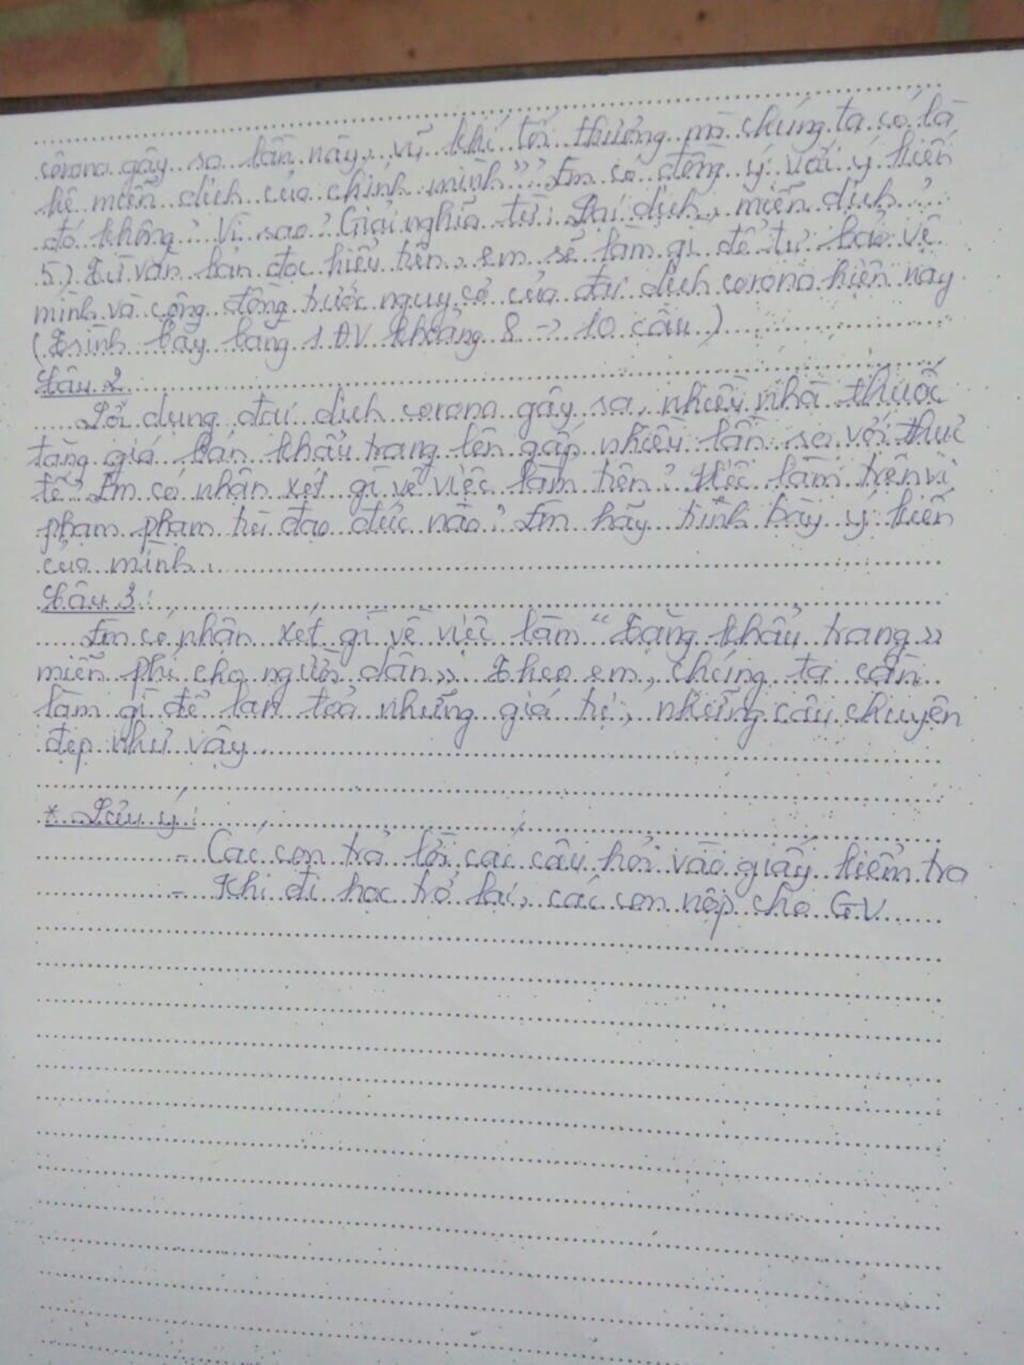 corona gây ra lần này, vũ khí tối thượng mà chúng ta có là
hệ miễn dịch của chính mình". Em có đồng ý với ý kiến
đó không? Vì sao? Giải nghĩa từ: Đại dịch, miễn dịch.
5.) Từ văn bản đọc hiểu trên, em sẽ làm gì để tự bảo vệ
mình và cộng đồng trước nguy cơ của đại dịch corona hiện nay
(Trình bày bằng 1 ĐV khoảng 8 -> 10 câu)
Câu 2
Lợi dụng đại dịch corona gây ra, nhiều nhà thuốc
tăng giá bán khẩu trang lên gấp nhiều lần so với thực
tế. Em có nhận xét gì về việc làm trên? Việc làm trên vi
phạm phạm trù đạo đức nào? Em hãy trình bày ý kiến
của mình.
Câu 3:
Em có nhận xét gì về việc làm "Tặng khẩu trang
miễn phí cho người dân". Theo em, chúng ta cần
làm gì để lan toả những giá trị, những câu chuyện
đẹp như vậy.
* Lưu ý:
- Các con trả lời các câu hỏi vào giấy kiểm tra
- Khi đi học trở lại, các con nộp cho GV